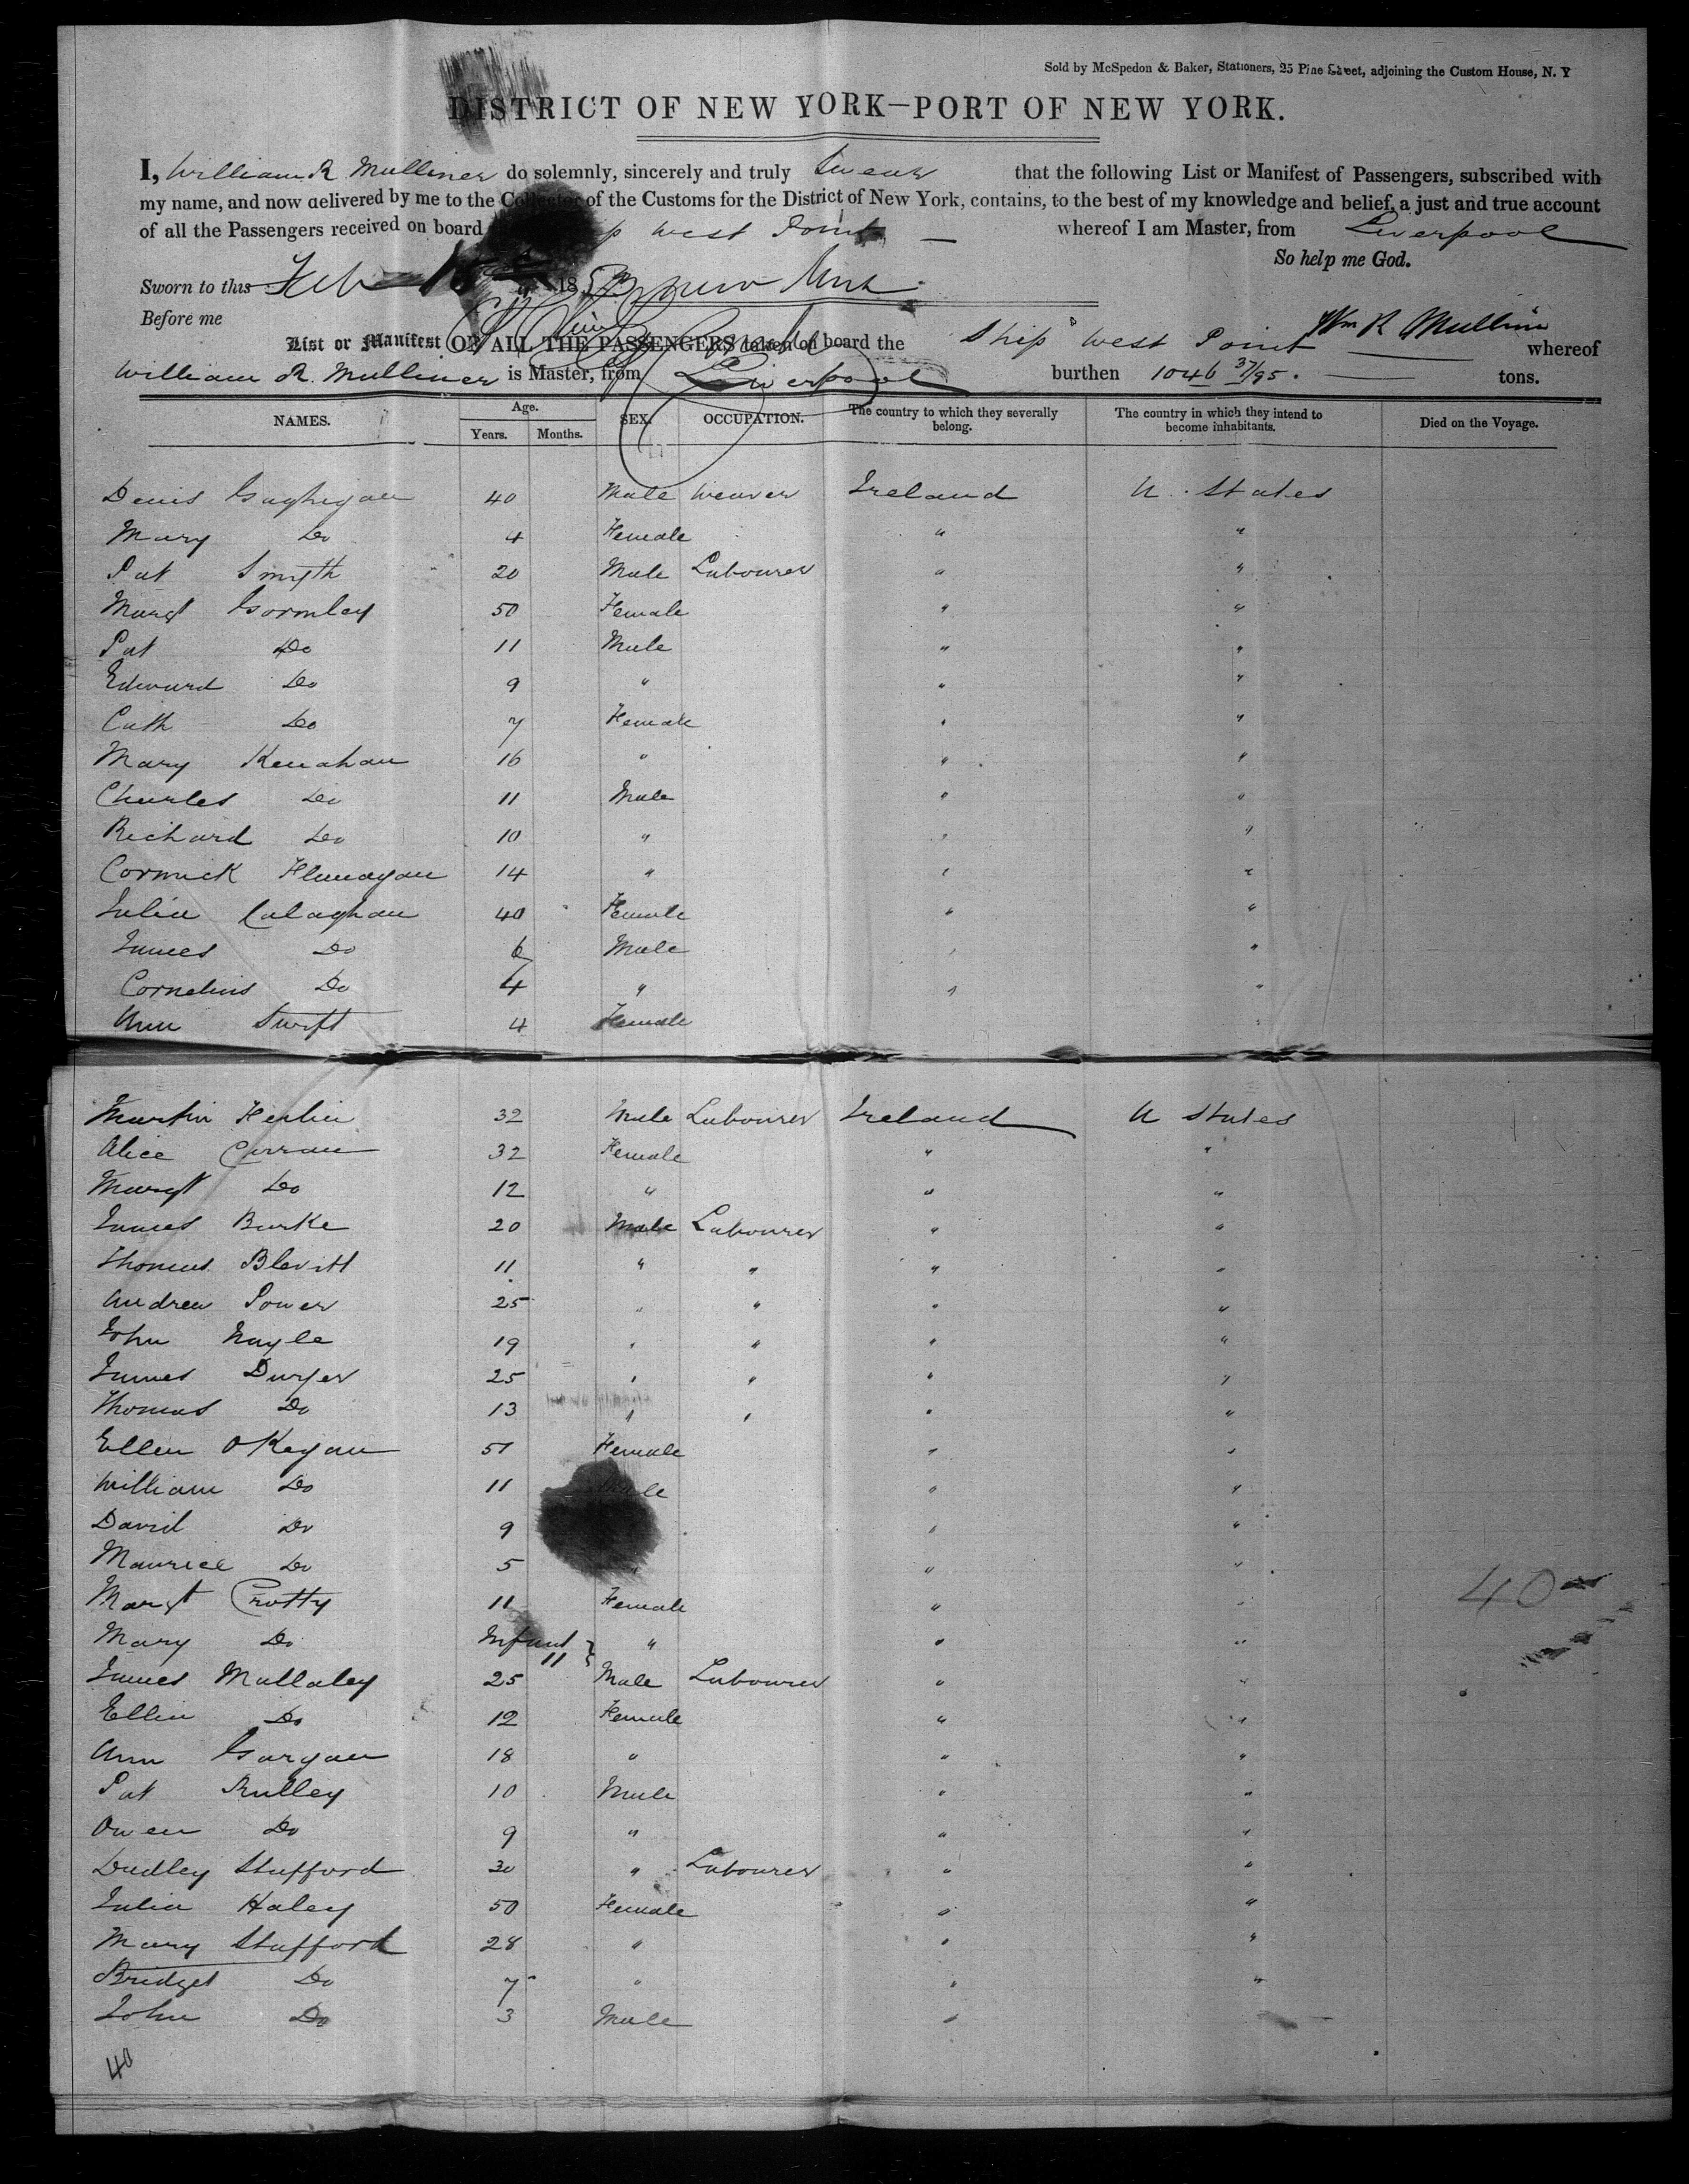 Sold by McSpedon & Baker, Stationers, 25 Pine Street, adjoining the Custom House, N. Y
DISTRICT OF NEW YORK—PORT OF NEW YORK.
I, William R Mulliner do solemnly, sincerely and truly Swear that the following List or Manifest of Passengers, subscribed with
my name, and now delivered by me to the Collector of the Customs for the District of New York, contains, to the best of my knowledge and belief, a just and true account
of all the Passengers received on board West Point whereof I am Master, from Liverpool
So help me God.
Sworn to this Feb 18 185
Before me
Wm R Mulliner
List or Manifest OF ALL THE PASSENGERS taken on board the Ship West Point whereof
William R. Mulliner is Master, from Liverpool burthen 1046 37/95. tons.
NAMES. Age. Years. Months. SEX. OCCUPATION. The country to which they severally belong. The country in which they intend to become inhabitants. Died on the Voyage.
Denis Gaghigan 40 Male Weaver Ireland U. States
Mary Do 4 Female " "
Pat Smyth 20 Male Labourer " "
Margt Gormley 50 Female " "
Pat Do 11 Male " "
Edward Do 9 " " "
Cath Do 7 Female " "
Mary Kenahan 16 " " "
Charles Do 11 Male " "
Richard Do 10 " " "
Cormick Flanagan 14 " " "
Julia Calaghan 40 Female " "
James Do 6 Male " "
Cornelius Do 4 " " "
Ann Swift 4 Female "
Martin Herlin 32 Male Labourer Ireland U States
Alice Curran 32 Female " "
Margt Do 12 " " "
James Burke 20 Male Labourer " "
Thomas Blevitt 11 " " " "
Andrew Power 25 " " " "
John Nagle 19 " " " "
James Dwyer 25 " " " "
Thomas Do 13 " " " "
Ellen OKegan 51 Female " "
William Do 11 Male " "
David Do 9 " "
Maurice Do 5 " " "
Margt Crotty 11 Female " "
Mary Do Infant 11 " " "
James Mullaley 25 Male Labourer " "
Ellen Do 12 Female " "
Ann Gargan 18 " " "
Pat Rulley 10 Male " "
Owen Do 9 " " "
Dudley Stafford 30 " Labourer " "
Julia Haley 50 Female " "
Mary Stafford 28 " " "
Bridget Do 7 " " "
John Do 3 Male "
40
40